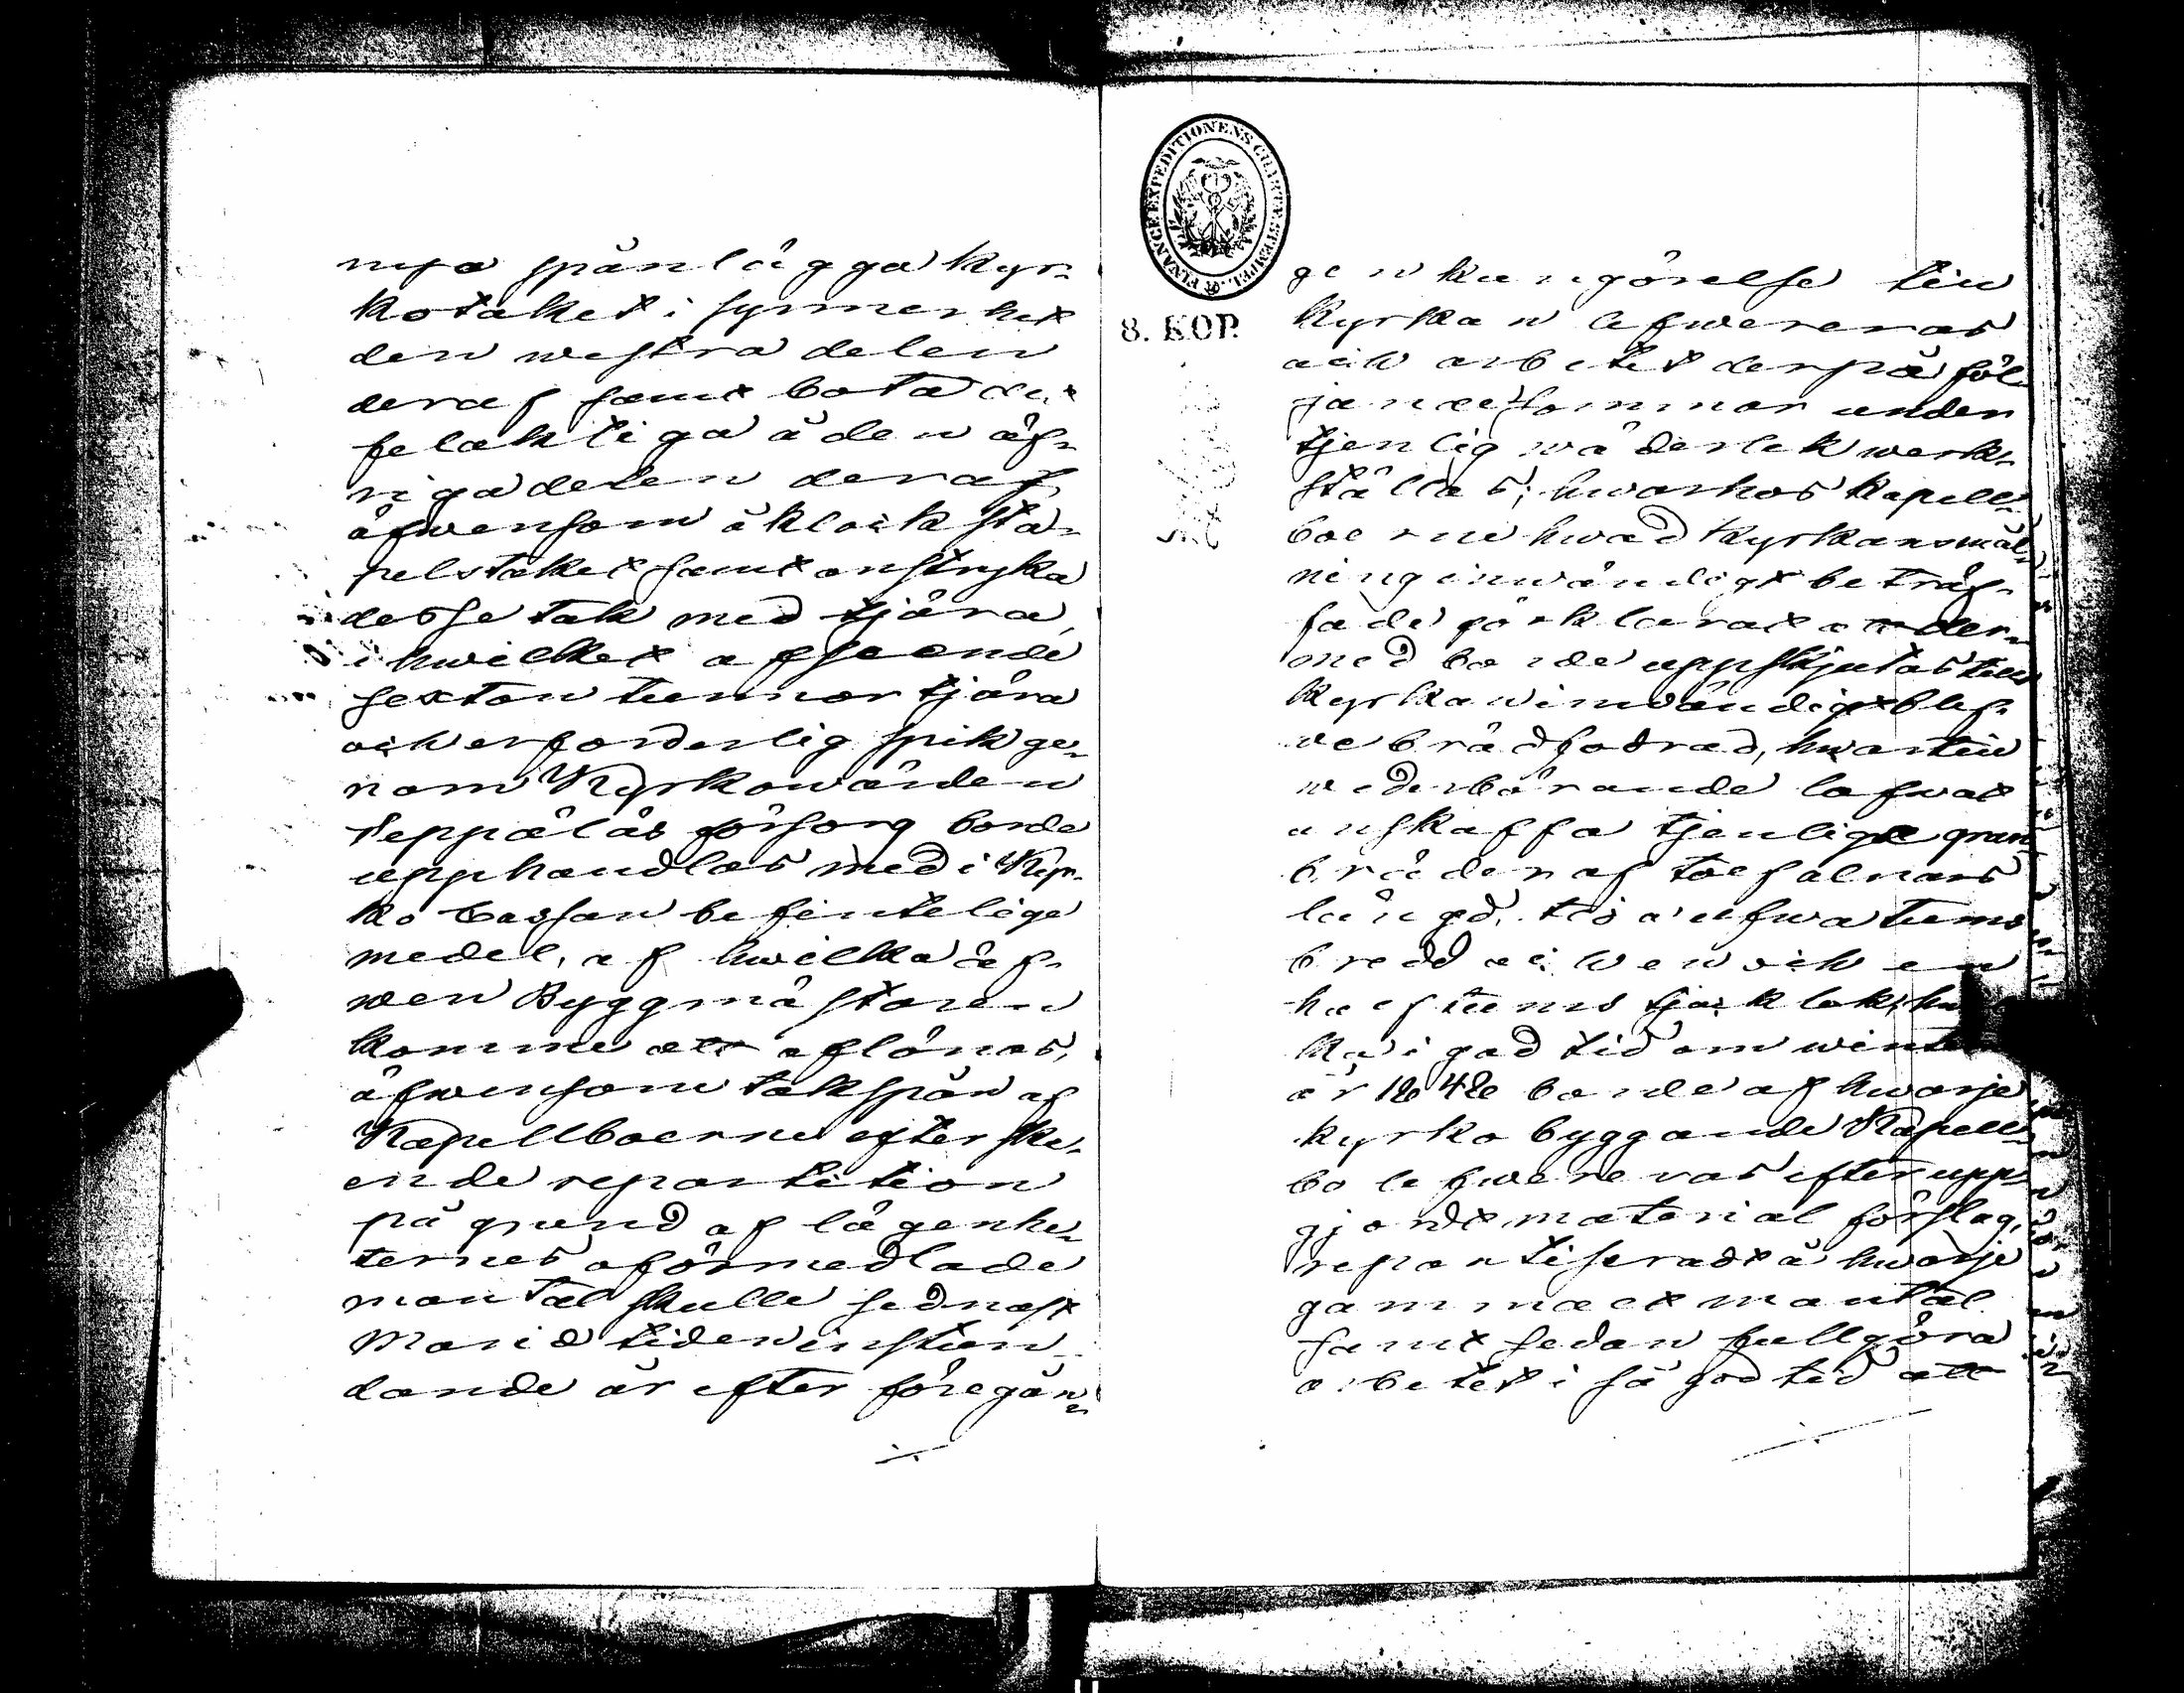 nya spånlägga kyr-
kotaket i synnerhet
den westra delen
deraf samt bota det
felaktiga å den öf-
riga delen deraf,
äfwensom å klock sta-
pelstaket samt anstryka
desse tak med tjära,
i hwilket afseende
sexton tunnor tjära
och erforderlig spik ge-
nom Kyrkowärden
Seppäläs försorg borde
upphandlas med i Kyr-
ko Cassan befinteliga
medel, af hwilka äf-
wen Byggmästaren
komme att aflönas,
äfwensom takspån af
Kapellboerne efter ske-
ende repartition
på grund af lägenhe-
ternes oförmedlade
mantal skulle sednast
Marie tiden instun-
dande år efter föregån-
FINANCEEXPEDITIONENS CHARTÆ STEMPEL
8. KOP.
gen kungörelse till
Kyrkan lefwereras
och arbetet derpå föl-
jande sommar under
tjenlig wäderlek werk-
ställas; hwarhos Kapell-
boerne hwad Kyrkans mål-
ning inwändigt beträf-
fade förklarat att der-
med borde uppskjutas till
kyrkan inwändigt blef-
we brädfodrad, hwartill
wederbörande lofwat
anskaffa tjenliga gran-
bräder af toe famnars
längd, tio a tolf tums
bredd och en
half tums tjocklek, hwil-
ka i god tid om wintern
år 1848 borde af hwarje
kyrko byggande Kapell-
bo lefwereras efter upp-
gjordt material förslag,
repartiseradt å hwarje
gammalt mantal
samt sedan fullgöra
arbetet i så god tid att